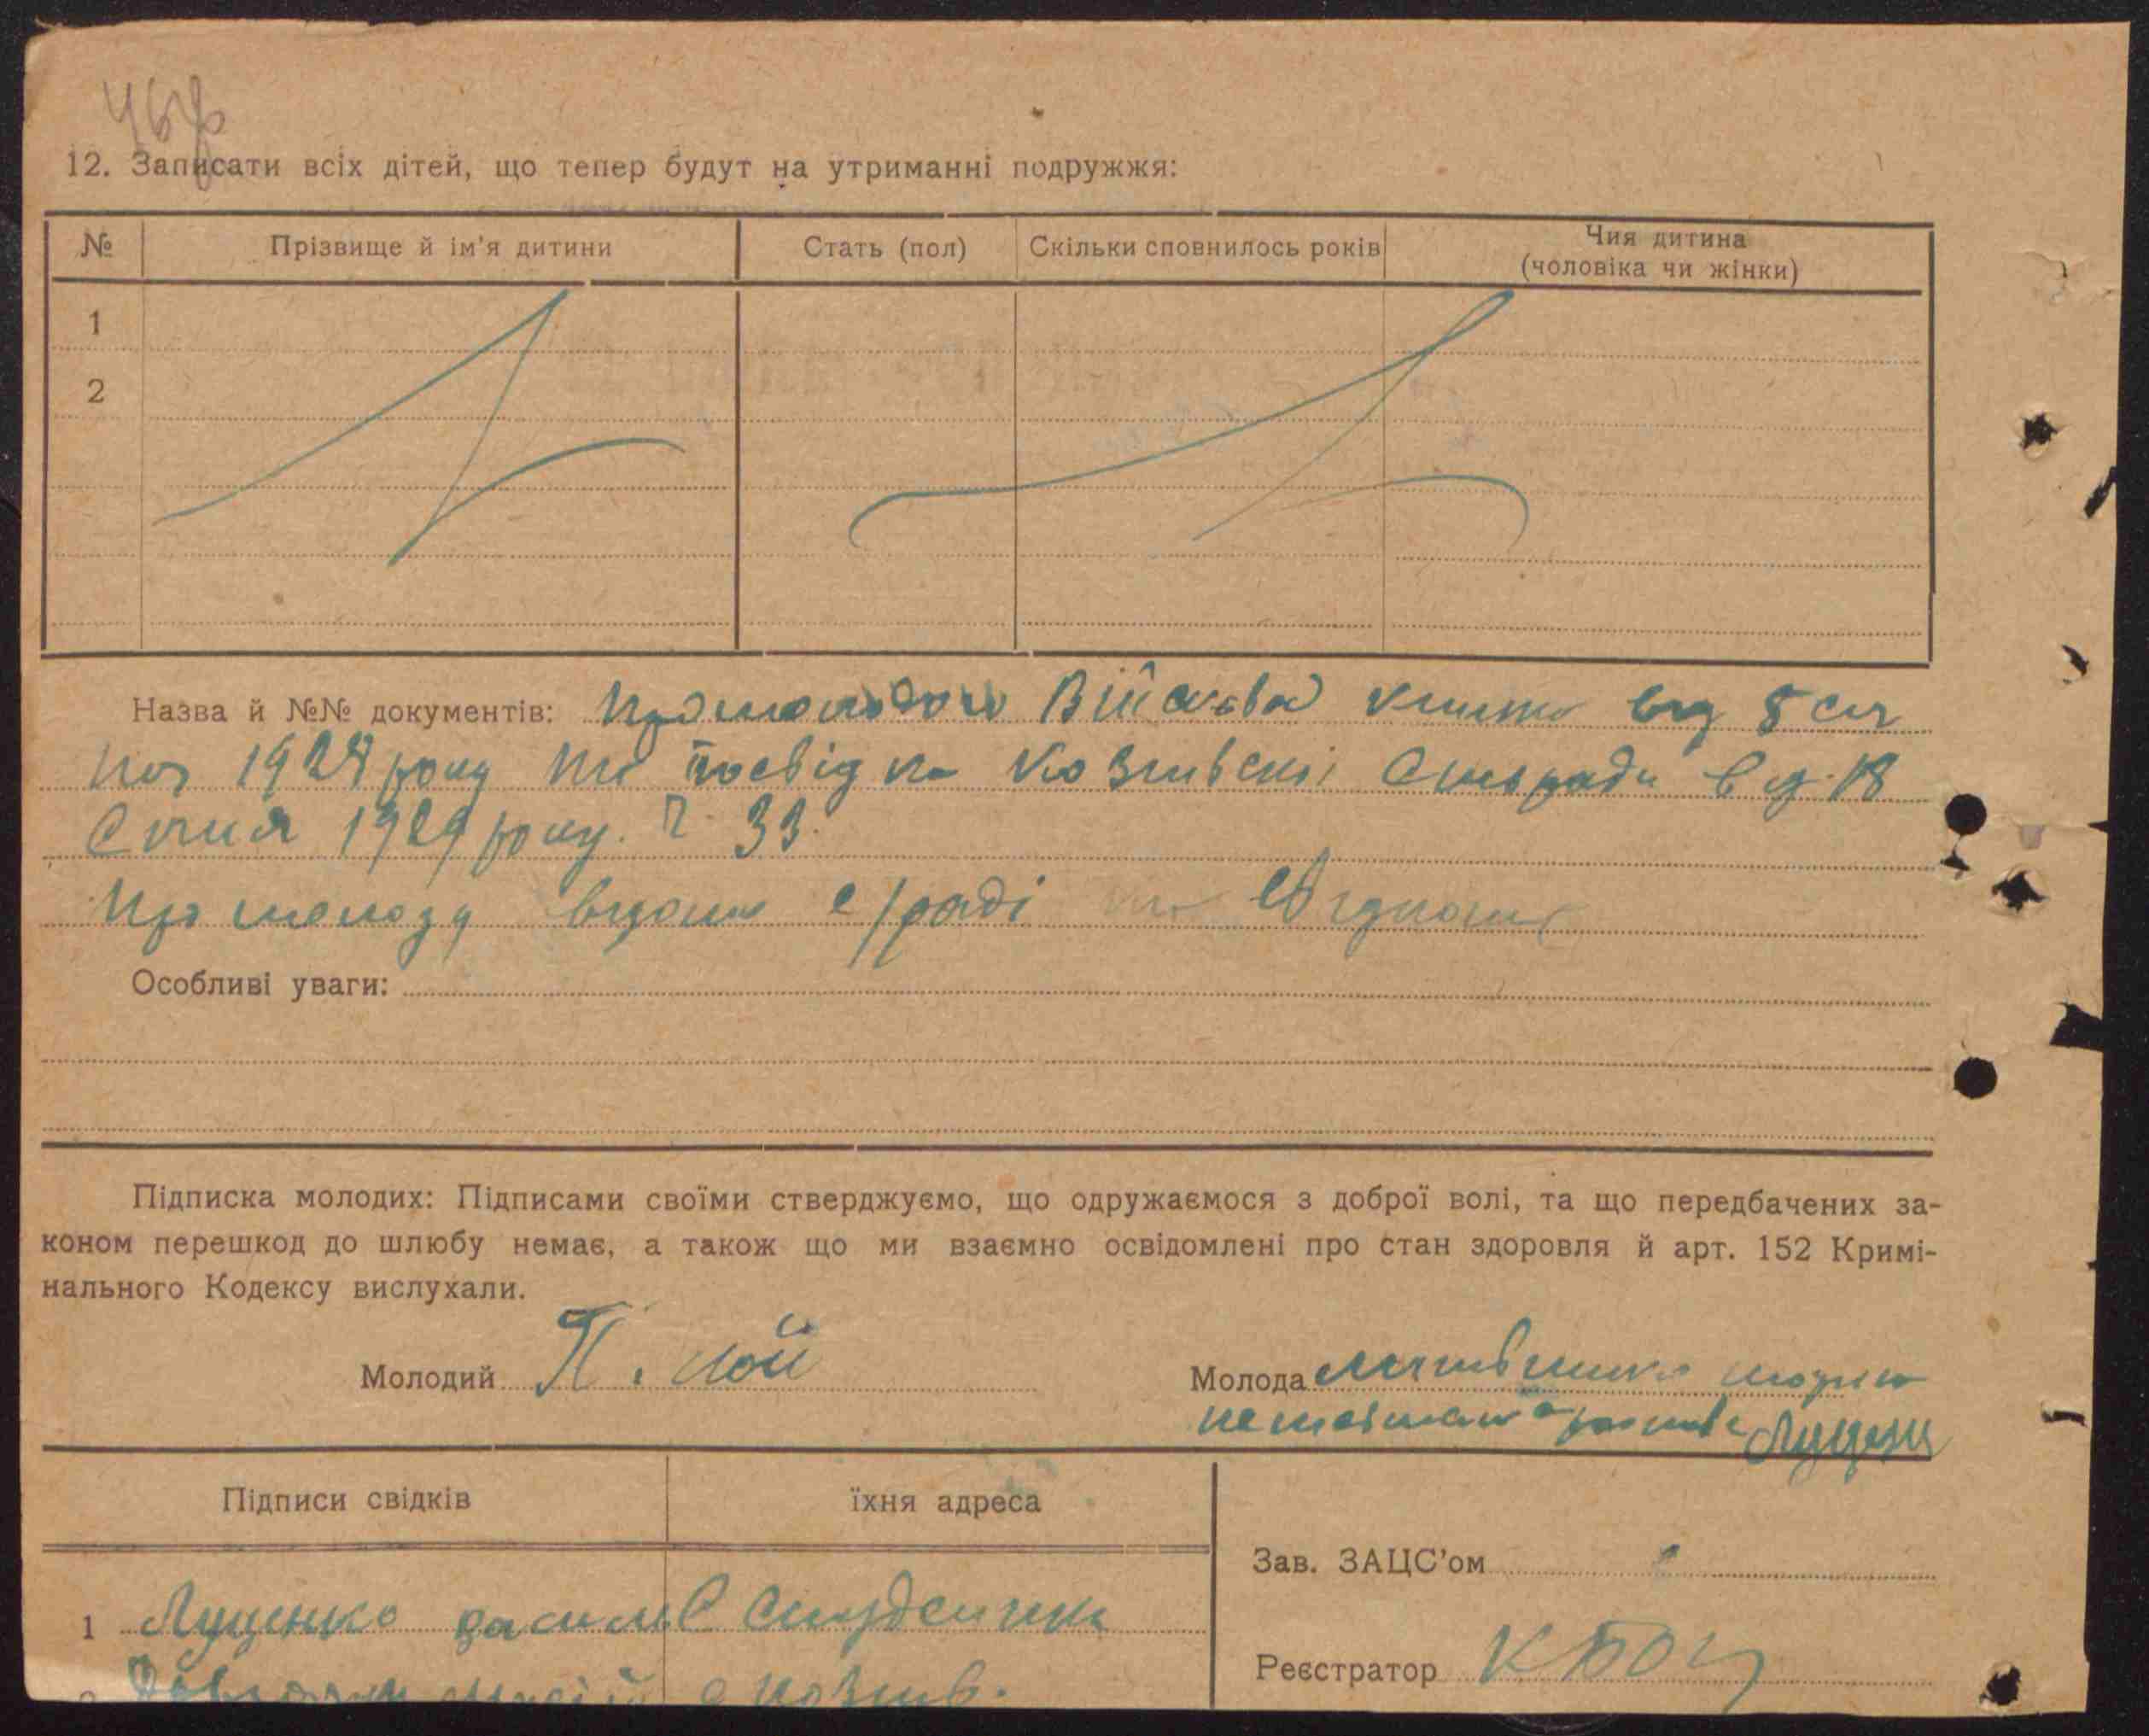 12. Записати всіх дітей, що тепер будут на утриманні подружжя:
№ Прізвище й ім'я дитини Стать (пол) Скільки сповнилось років Чия дитина
(чоловіка чи жінки)
1
2
Назва й №№ документів: Про молодого Військова книжка від 5 січ
ня 1928 року та посвідка Козиївської Сільради від 18
Січня 1929 року. Ч 33.
Про молоду відома с/раді
Особливі уваги:
Підписка молодих: Підписами своїми стверджуємо, що одружаємося з доброї волі, та що передбачених за-
коном перешкод до шлюбу немає, а також що ми взаємно освідомлені про стан здоровля й арт. 152 Кримі-
нального Кодексу вислухали.
Молодий П. Лой Молода
неписьменна Луценко
Підписи свідків їхня адреса
Зав. ЗАЦС'ом
1 Луценко
Реєстратор